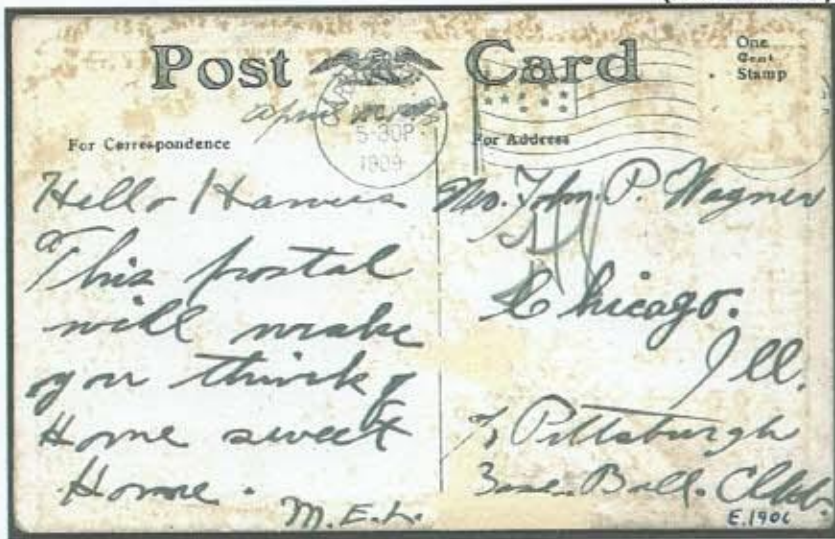 Post Card
One
Cent
Stamp
5-30P
1909
For Correspondence
For Address
Hello Hannes
This postal
will make
you think of
Home sweet
Home.
M.E.L.
Mr. John. P. Wagner
Chicago.
Ill.
c/o Pittsburgh
Base. Ball. Club.
E.1906